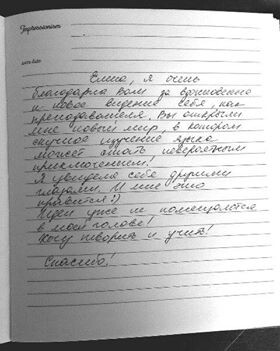 Impressionism
Елена, я очень
благодарна Вам за вдохновение
и новое видение себя, как
преподавателя. Вы открыли
мне новый мир, в котором
скучное изучение языка
может стать невероятным
приключением!
Я увидела себя другими
глазами. И мне это
нравится :)
Идеи уже не помещаются
в моей голове!
Хочу творить и учить!
Спасибо!